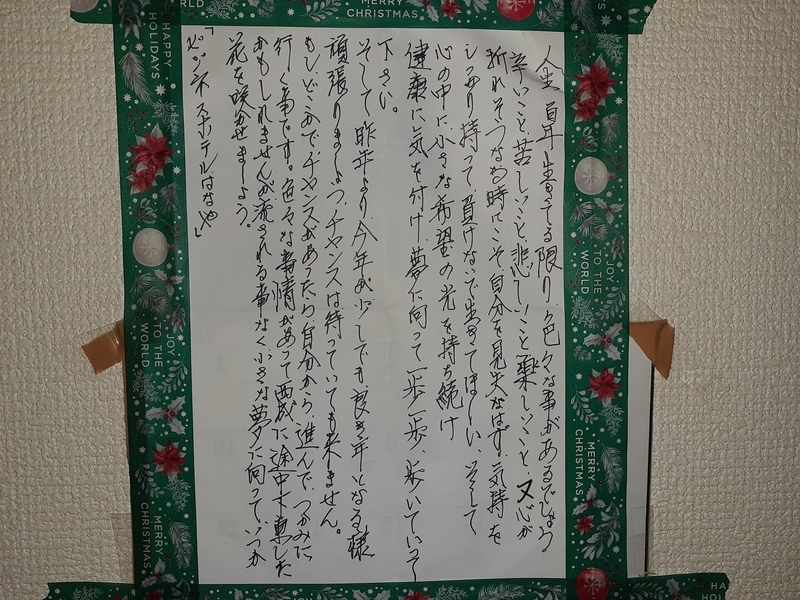 人生百年 生きてる限り、色々な事があるでしょう
辛いこと、苦しいこと、悲しいこと、楽しいこと、又心が
折れそうなる時にこそ、自分を見失なはず、気持を
しっかり持って、負けないで生きてほしい、そして
心の中に小さな希望の光を持ち続け
健康に気を付け、夢に向って一歩一歩、歩いていって
下さい。
そして、昨年より、今年が少しでも、良き年となる様
頑張りましょう、チャンスは待っていても来ません。
もし、どこかで、チャンスがあったら、自分から、進んで、つかみに
行く事です。色々な事情があって西成に途中下車した
かもしれませんが、流される事なく小さな夢に向って、いつか
花を咲かせましょう。
「ビジネスホテルはなや」
MERRY
CHRISTMAS
HAPPY
HOLIDAYS
JOY
TO THE
WORLD
MERRY
CHRISTMAS
JOY
TO THE
WORLD
MERRY
CHRISTMAS